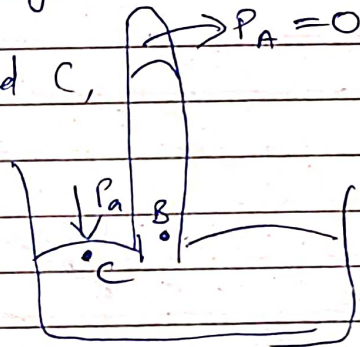 P_A = 0
d C,
P_a
B
C